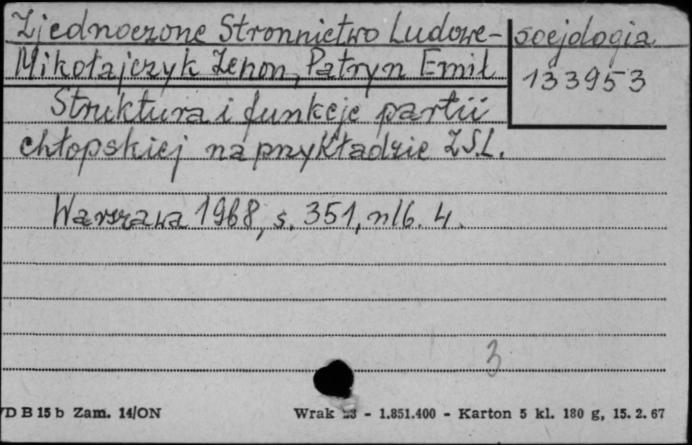 Zjednoczone Stronnictwo Ludowe-
socjologia
Mikołajczyk Zenon, Patryn Emil
133953
Struktura i funkcje partii
chłopskiej na przykładzie ZSL.
Warszawa 1968, s. 351, nlb. 4.
3
D B 15 b Zam. 14/ON
Wrak - 1.851.400 - Karton 5 kl. 180 g, 15. 2. 67